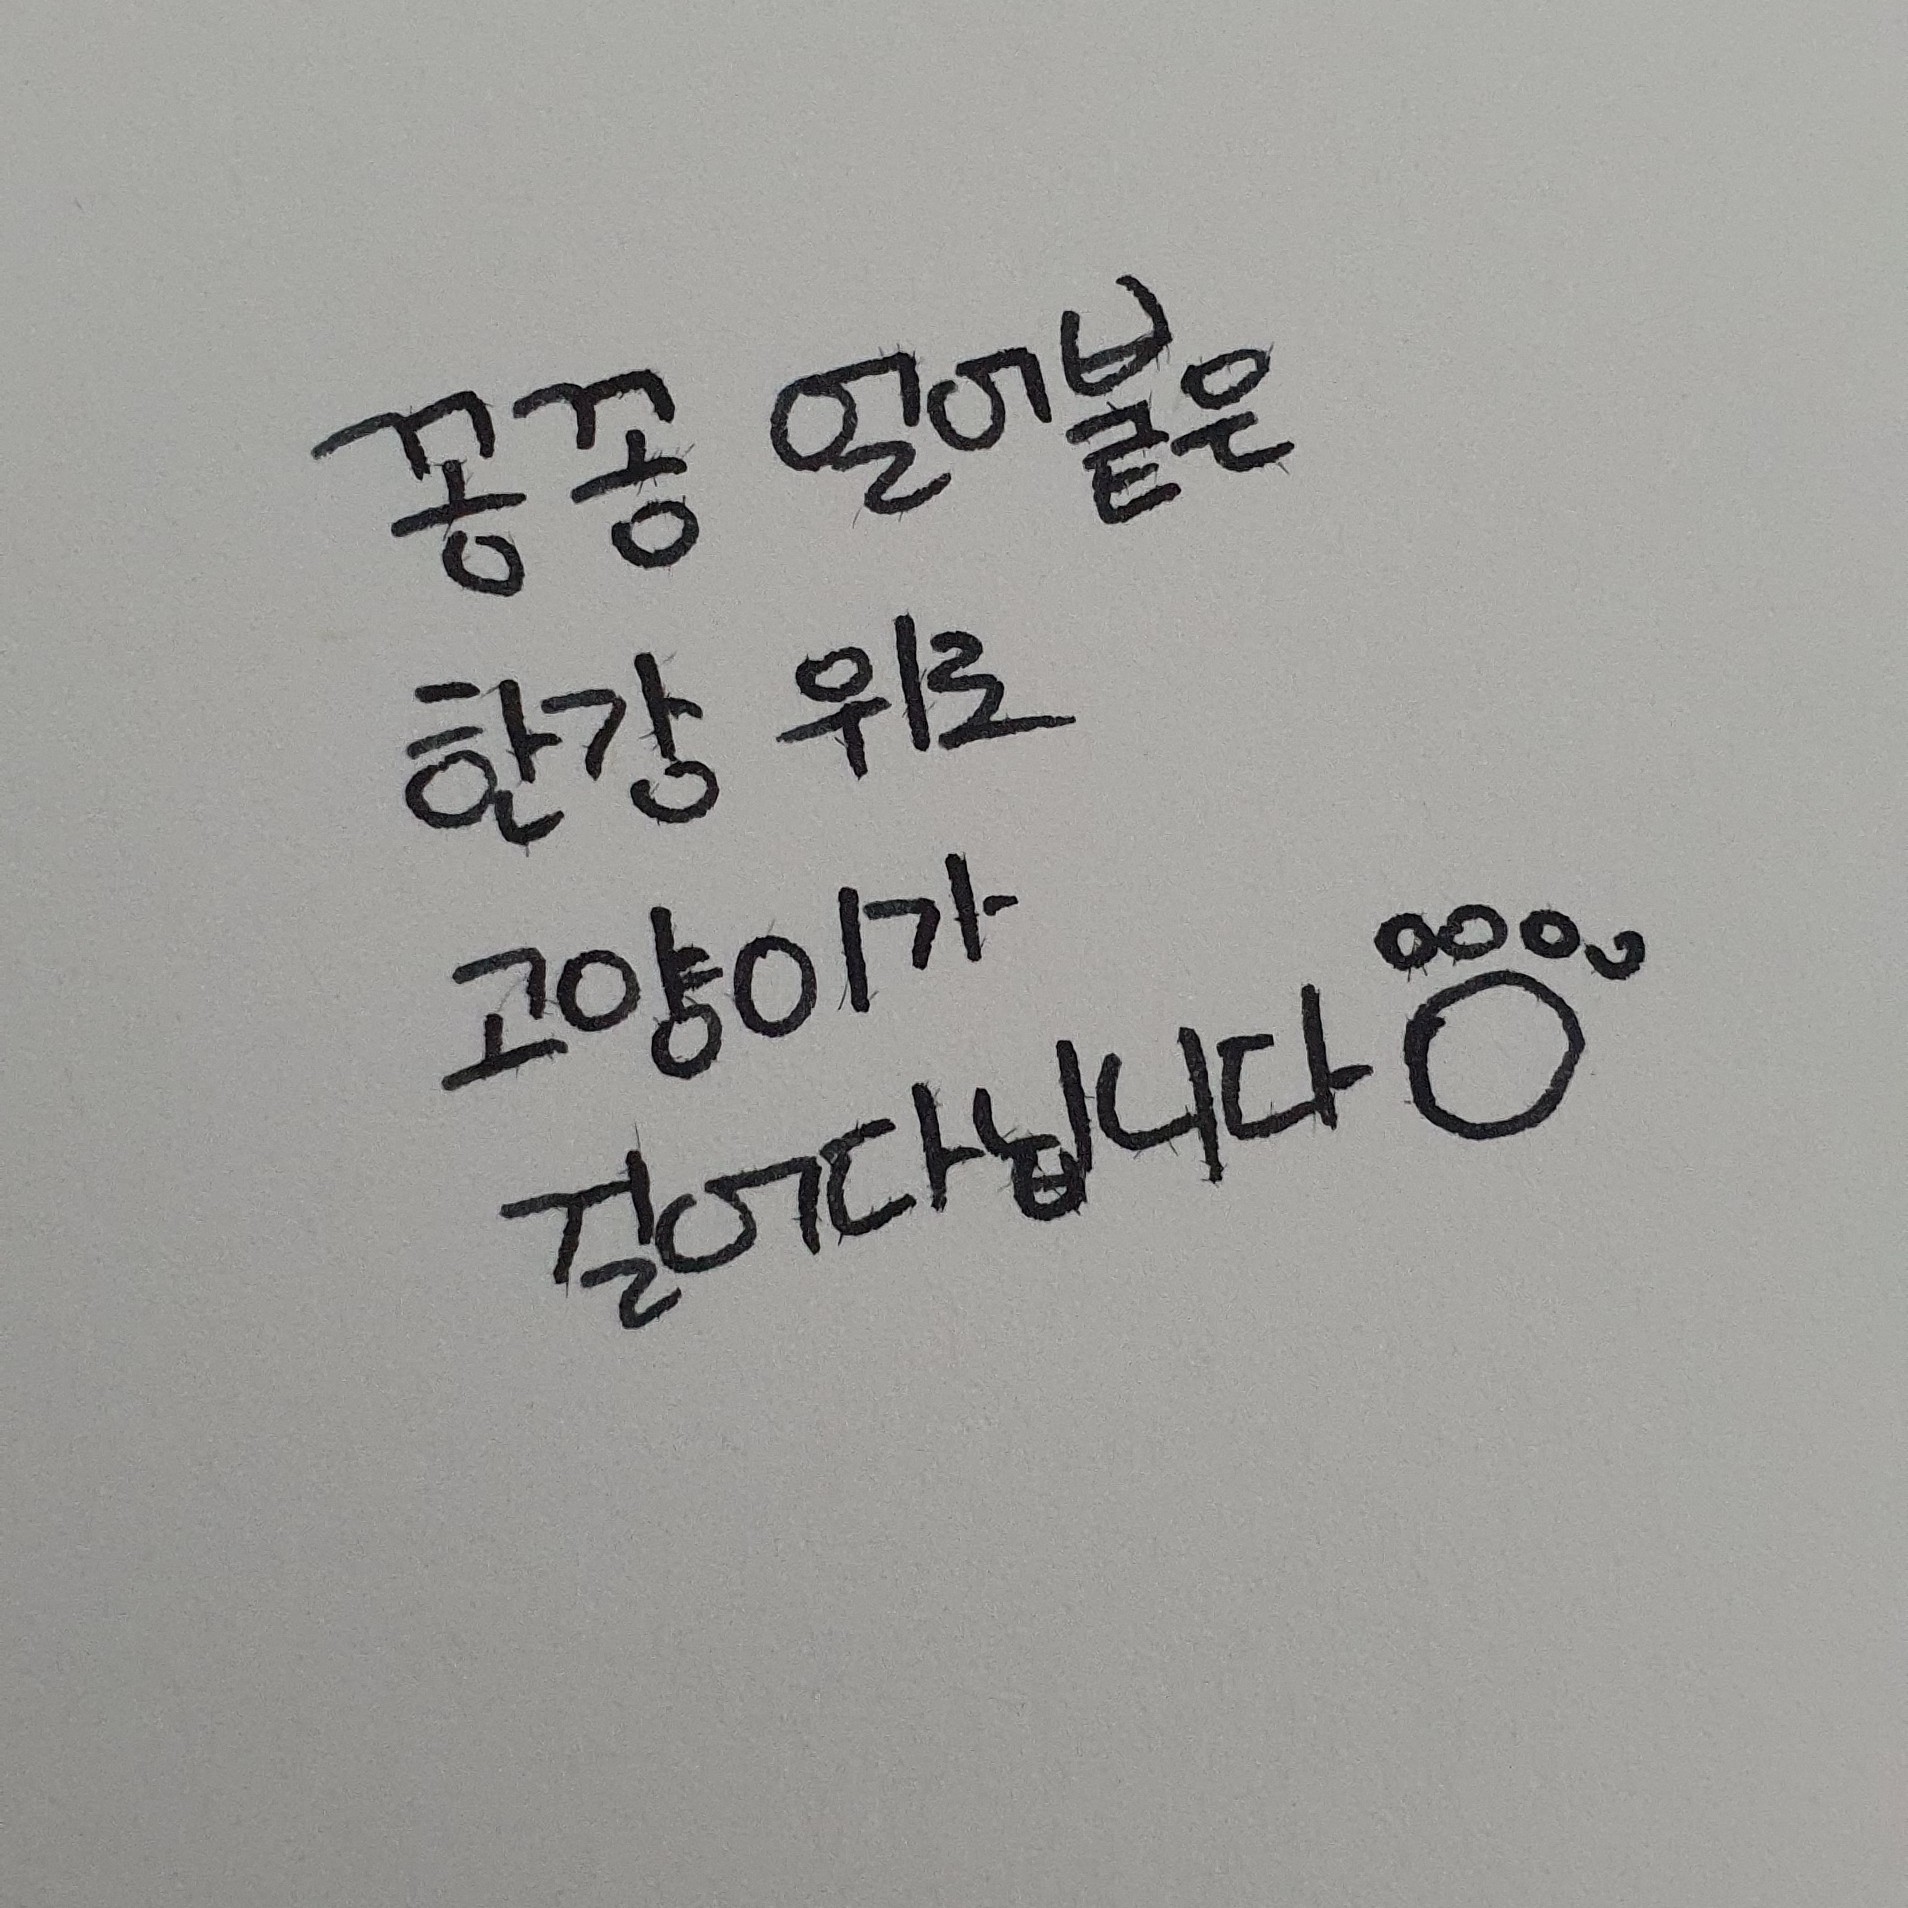 꽁꽁 얼어붙은
한강 위로
고양이가
걸어다닙니다